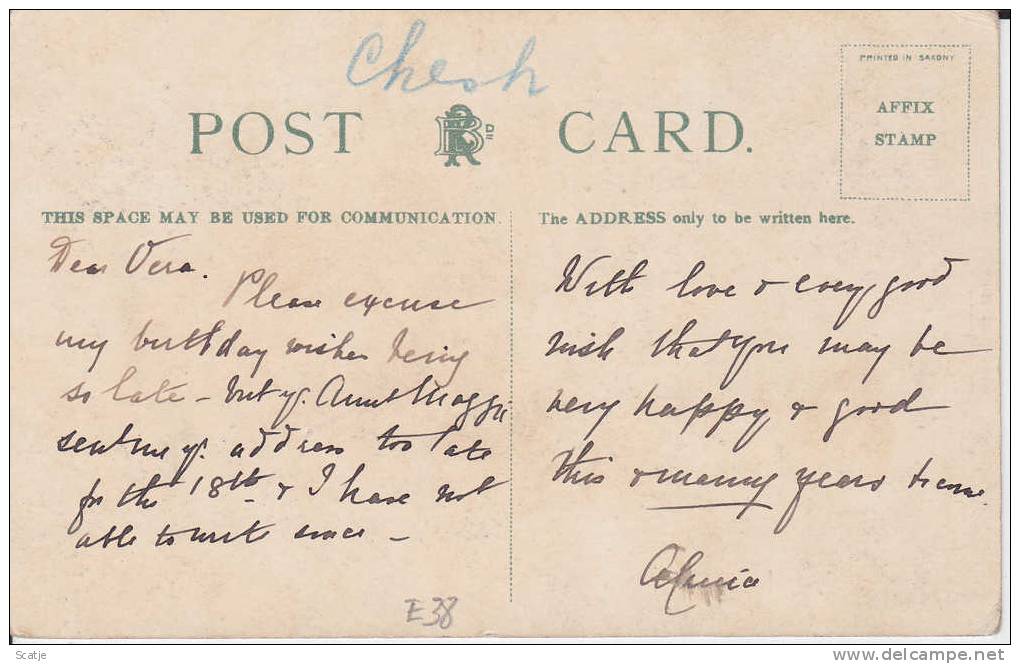 Chesh
PRINTED IN SAXONY
POST CARD.
AFFIX
STAMP
THIS SPACE MAY BE USED FOR COMMUNICATION.
The ADDRESS only to be written here.
Dear Vera.
Please excuse
my birthday wishes being
so late – but yr. Aunt Maggie
sent me yr. address too late
for the 18th & I have not
able to write since –
With love & every good
wish that you may be
very happy & good
this & many years to come.
E38
Scatje
www.delcampe.net